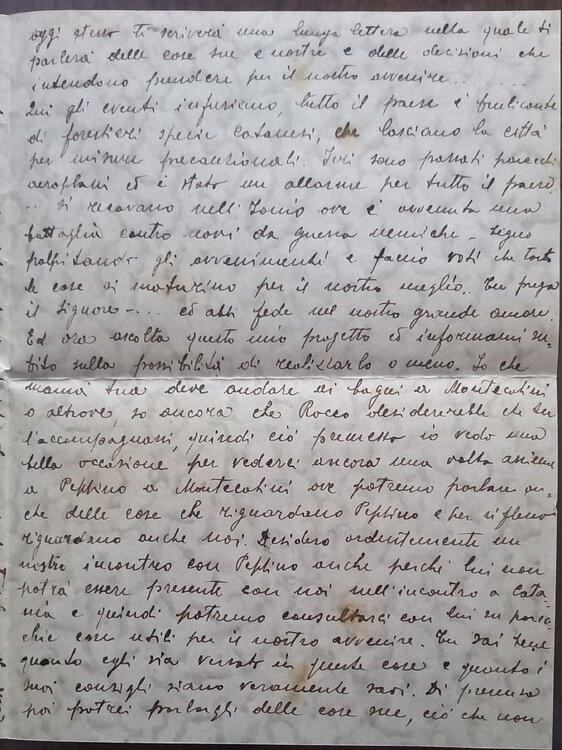 oggi stesso ti scriverà una lunga lettera nella quale ti
parlerà delle cose sue e nostre e delle decisioni che
intendono prendere per il nostro avvenire........
Qui gli eventi infuriano, tutto il paese è brulicante
di forestieri specie Catanesi, che lasciano la città
per misure precauzionali. Ieri sono passati parecchi
aeroplani ed è stato un allarme per tutto il paese,
... si recavano nell'Ionio ove è avvenuta una
battaglia contro navi da guerra nemiche. Seguo
palpitando gli avvenimenti e faccio voti che tutte
le cose si maturino per il nostro meglio. Tu prega
il Signore -.... ed abbi fede nel nostro grande amore.
Ed ora ascolta questo mio progetto ed informami su-
bito sulla possibilità di realizzarlo o meno. So che
mamà tua deve andare ai bagni a Montecatini
o altrove, so ancora che Rocco desidererebbe che tu
l'accompagnassi, quindi ciò premesso io vedo una
bella occasione per vederci ancora una volta assieme
a Peppino a Montecatini ove potremo parlare an-
che delle cose che riguardano Peppino e per riflesso
riguardano anche noi. Desidero ardentemente un
nostro incontro con Peppino anche perché lui non
potrà essere presente con noi nell'incontro a Cata-
nia e quindi potremo consultarci con lui su parec-
chie cose utili per il nostro avvenire. Tu sai bene
quanto egli sia versato in queste cose e quanto i
suoi consigli siano veramente savi. Di presenza
poi potrei parlargli delle cose sue, ciò che non